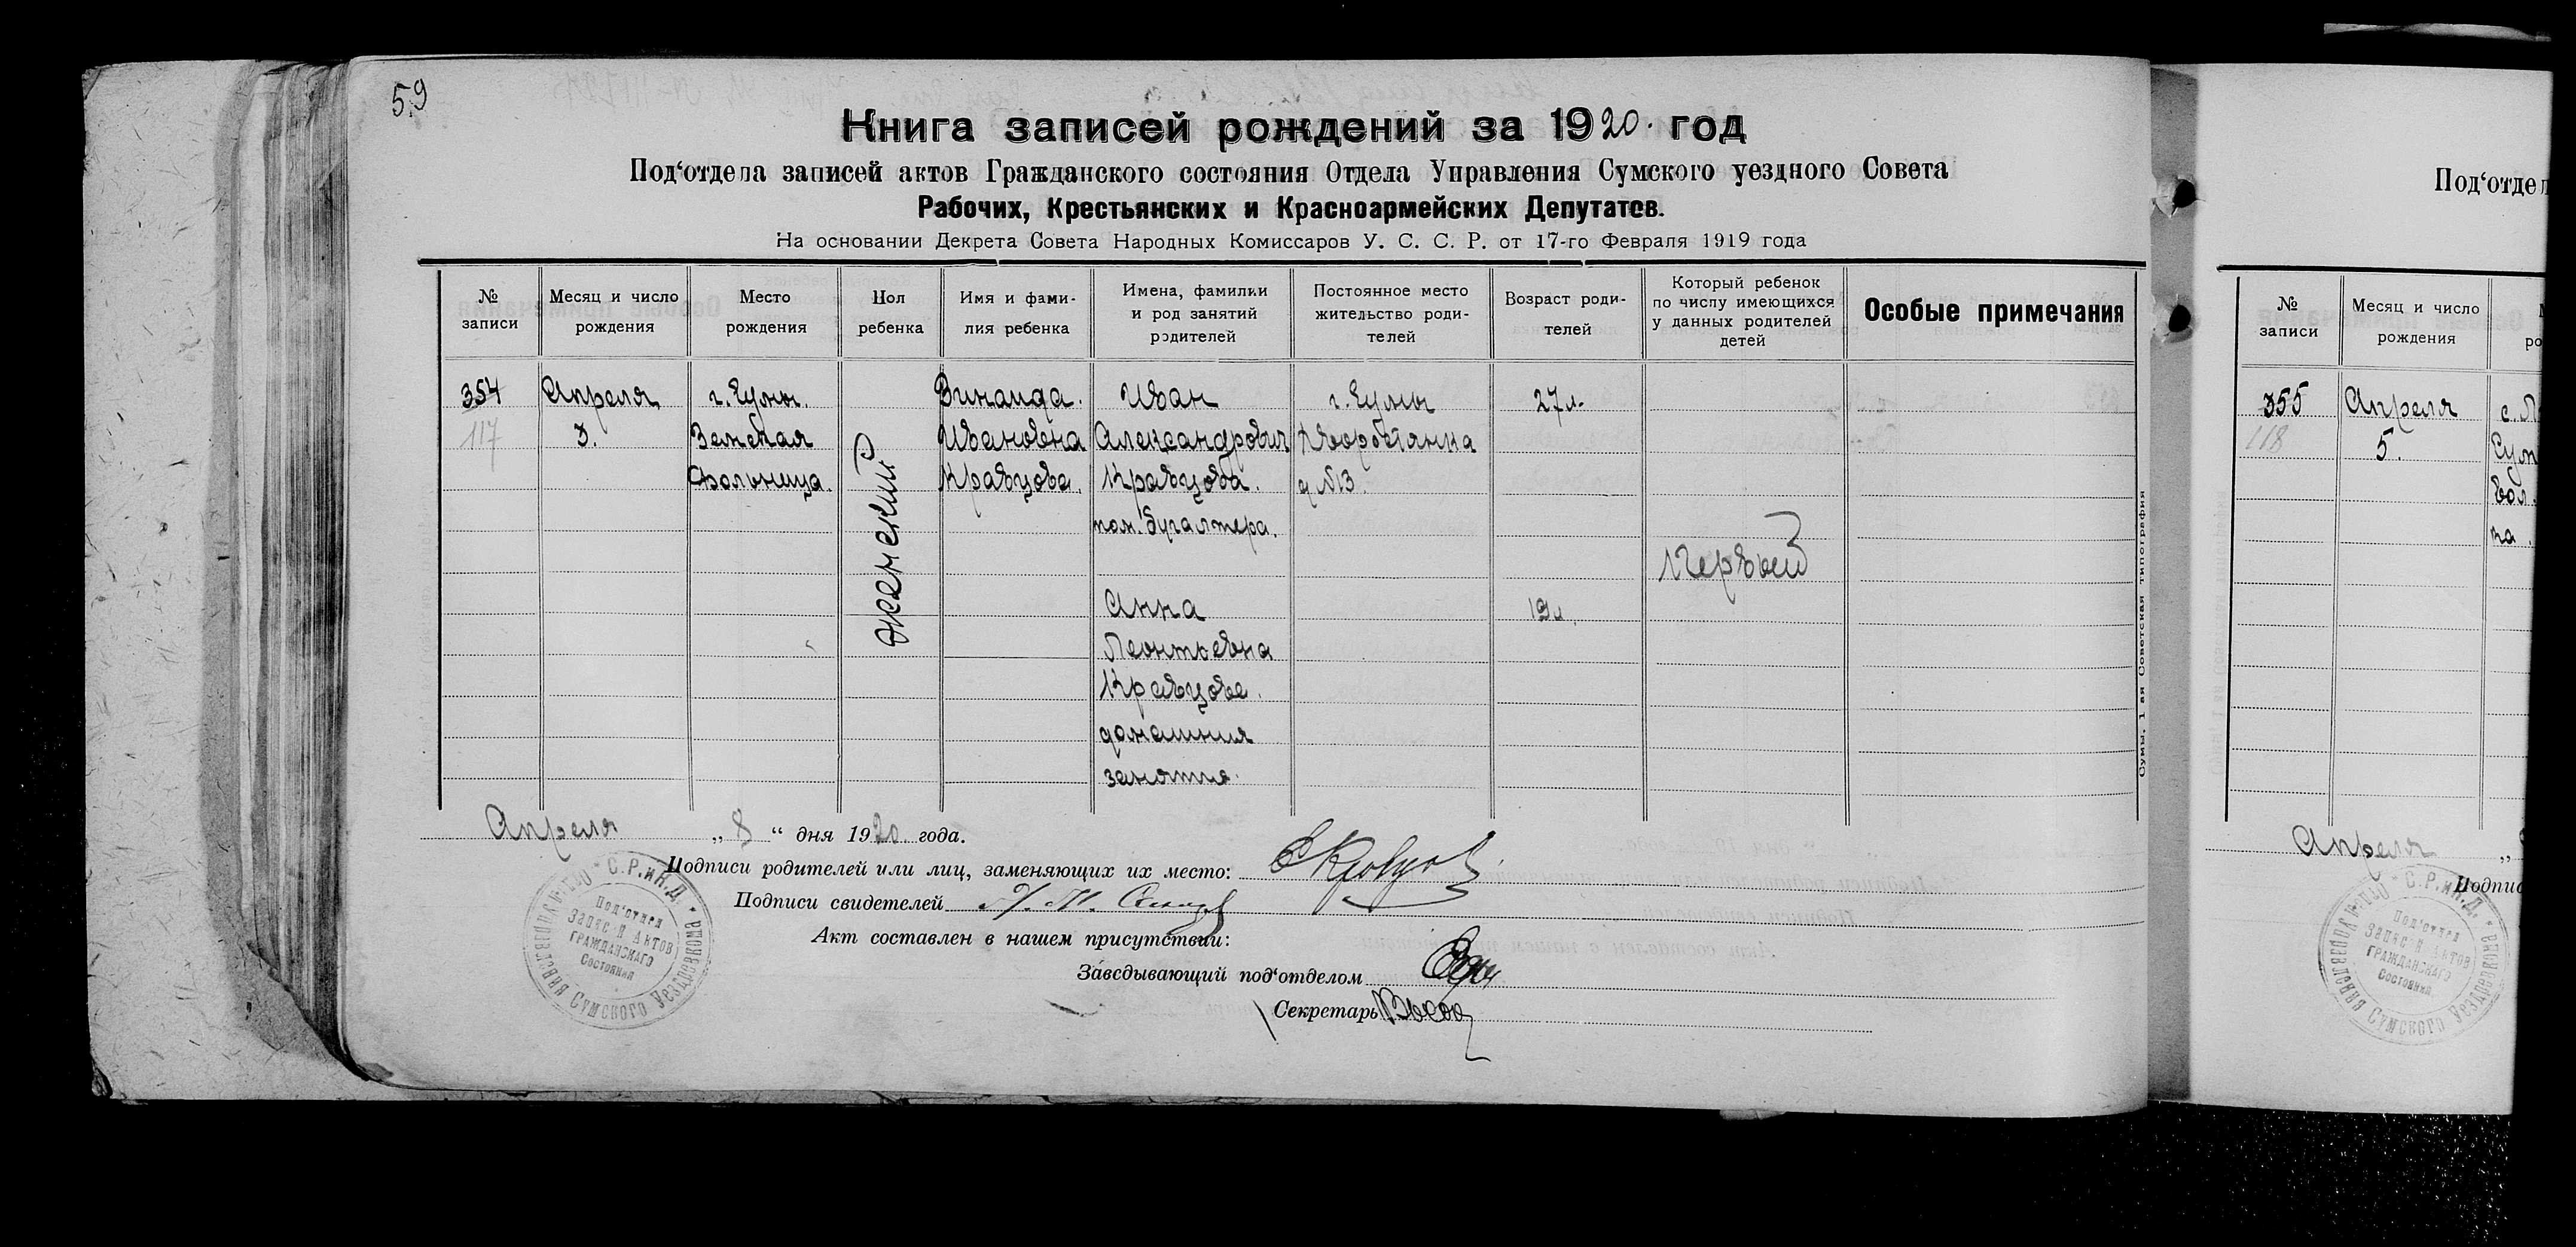 59
Книга записей рождений за 1920. год
Под‘отдела записей актов Гражданского состояния Отдела Управления Сумского уездного Совета
Рабочих, Крестьянских и Красноармейских Депутатов.
На основании Декрета Совета Народных Комиссаров У. С. С. Р. от 17-го Февраля 1919 года
№ записи
Месяц и число рождения
Место рождения
Пол ребенка
Имя и фами-
лия ребенка
Имена, фамилии
и род занятий
родителей
Постоянное место
жительство роди-
телей
Возраст роди-
телей
Который ребенок
по числу имеющихся
у данных родителей
детей
Особые примечания
354
117
Апреля
3.
г. Сумы.
Земская
больница.
женский
Зинаида.
Ивановна
Кравцова.
Иван
Александрович
Кравцова.
пом. бугалтера.
Анна
Леонтьевна
Кравцова.
домашния
занятия.
г. Сумы
д №13.
27 л.
19 л.
Первый
Сумы, 1 ая Советская типография
Апреля „8“ дня 1920 года.
Подписи родителей или лиц, заменяющих их место:
Подписи свидетелей
Акт составлен в нашем присутствии:
Заведывающий под‘отделом
Секретарь
С.Р.и К.Д.
Сумского Уездревкома
Под‘отдел
Запис й Актов
Гражданскаго
Состояния
Под‘отдел
№ записи
Месяц и число
рождения
355
118
Апреля
5.
с.
Сум
вол.
ка.
Апреля
Подпис
С.Р.и К.Д.
Сумского Уездревкома
Под‘отдел
Запис й Актов
Гражданскаго
Состояния